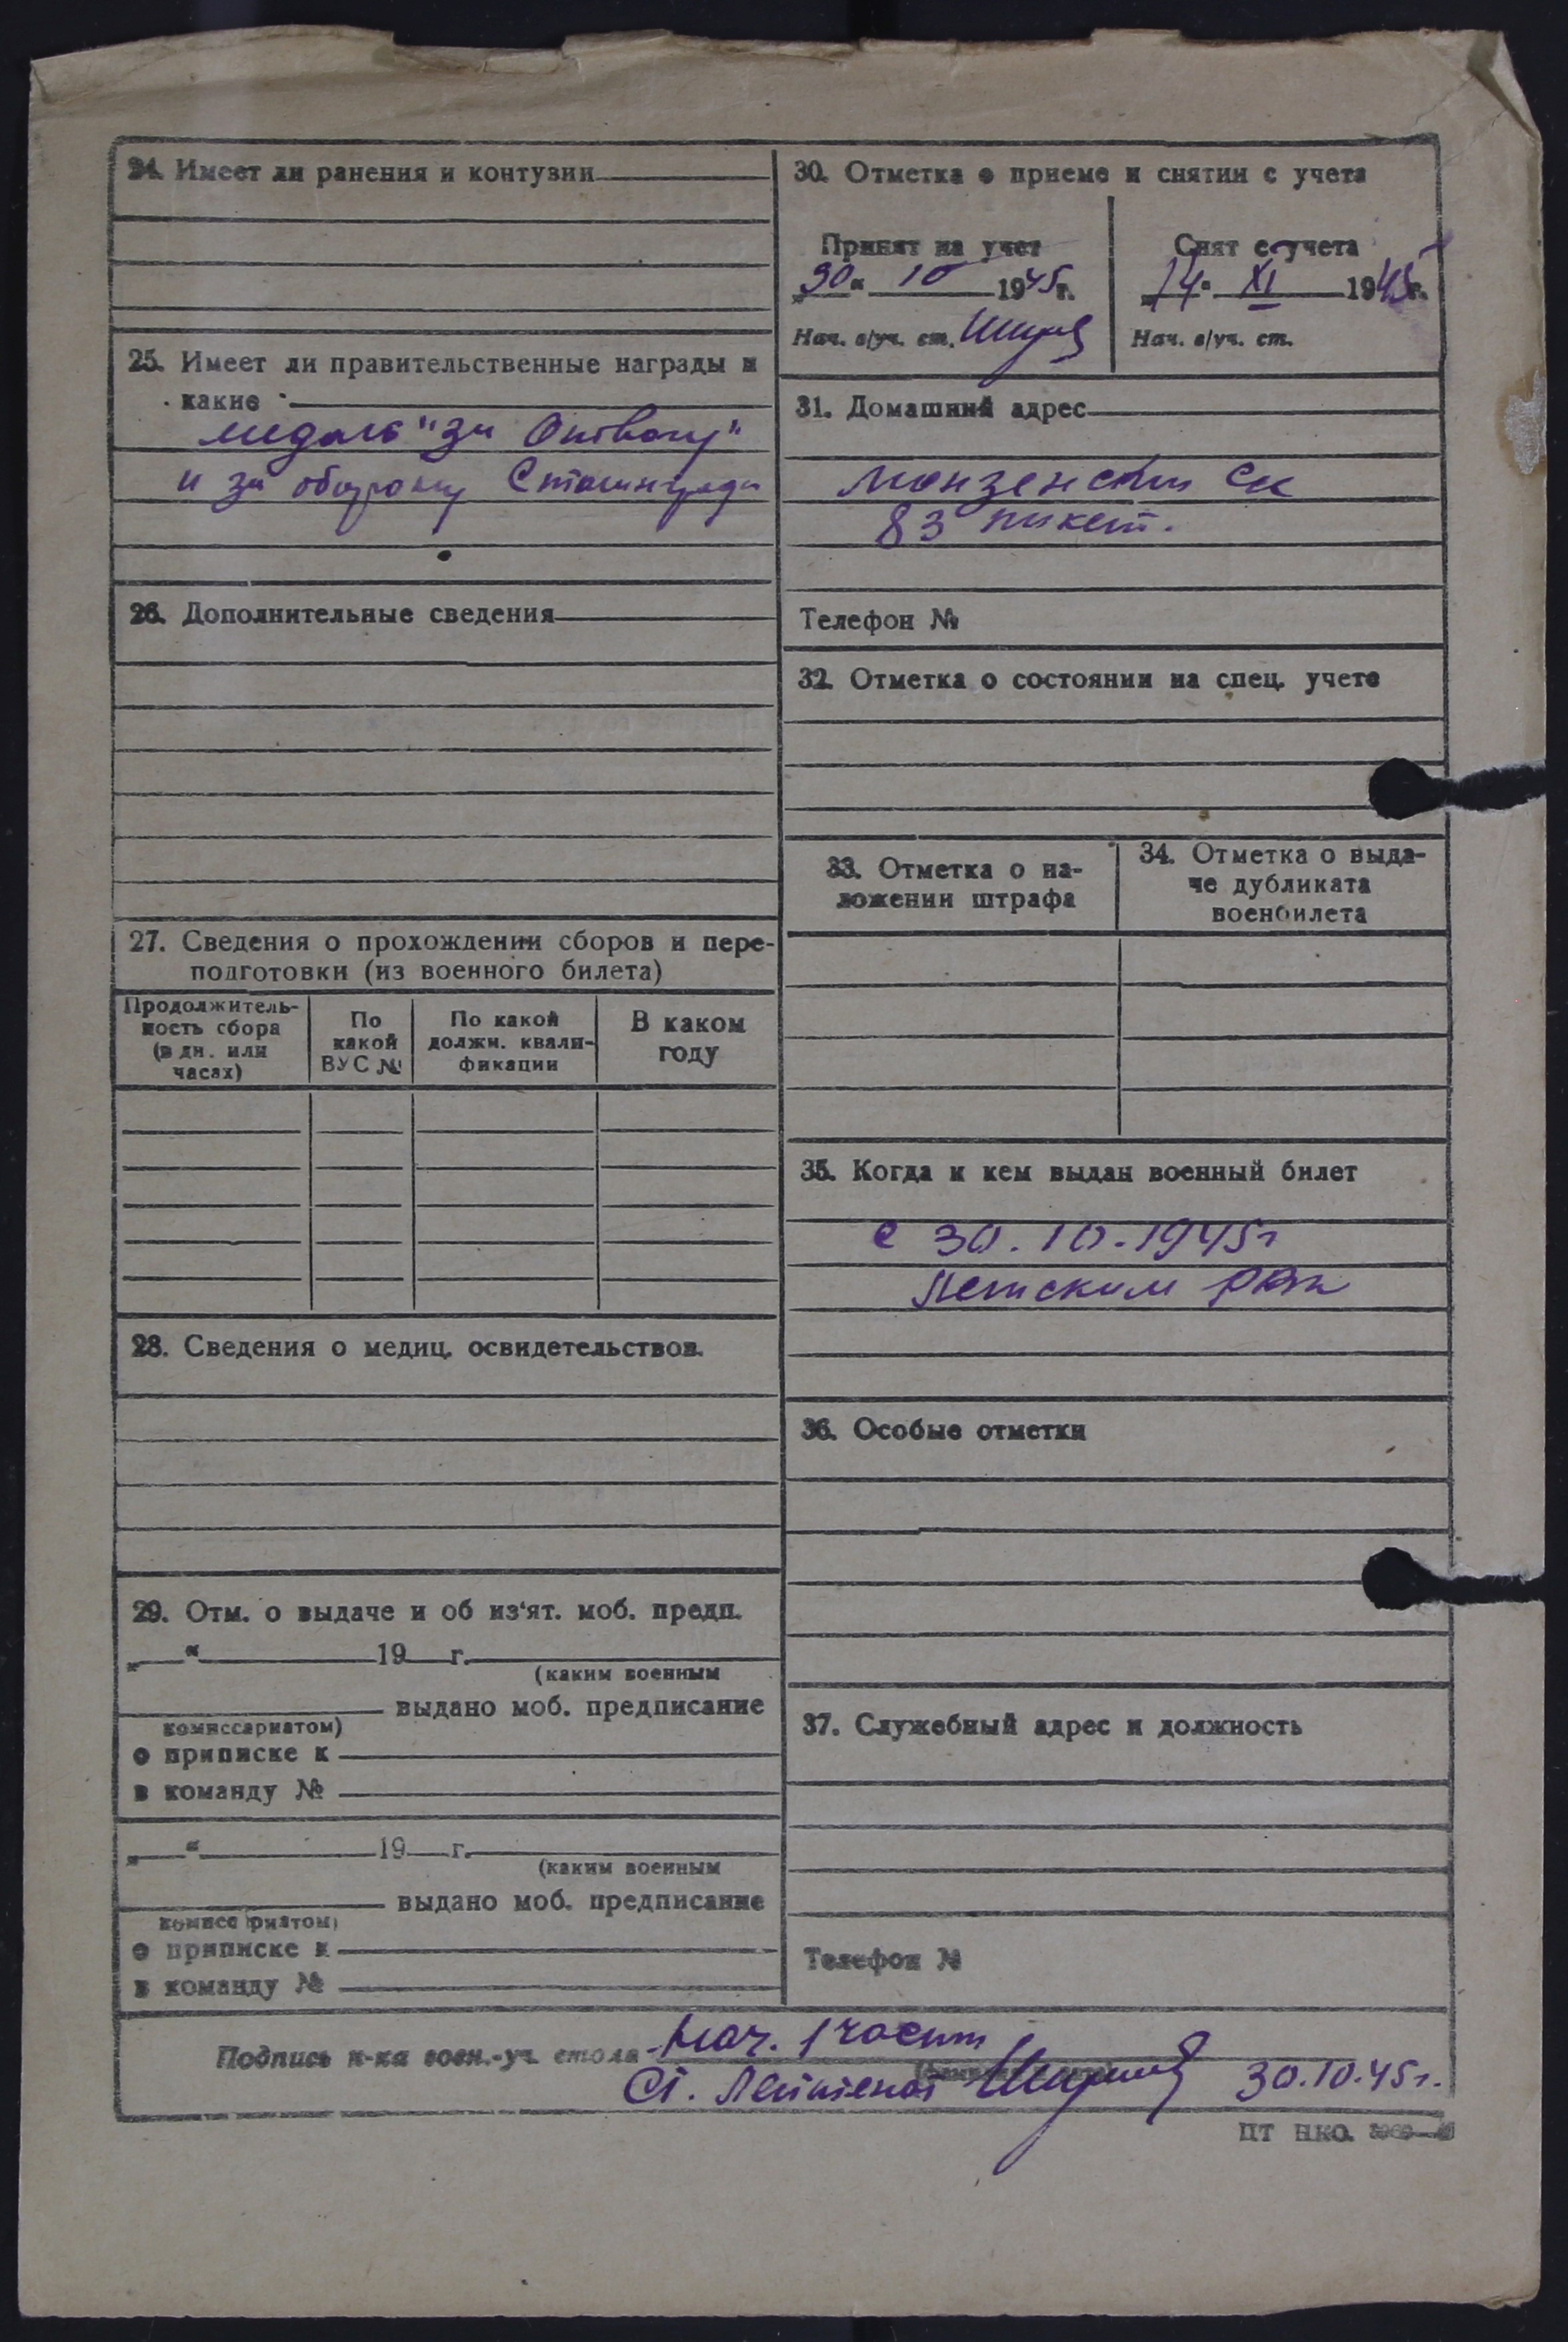 24. Имеет ли ранения и контузии
25. Имеет ли правительственные награды и
какие
медаль "За Отвагу"
и за оборону Сталинграда
26. Дополнительные сведения
27. Сведения о прохождении сборов и пере-
подготовки (из военного билета)
Продолжитель-
ность сбора
(в дн. или
часах)
По
какой
ВУС №
По какой
должн. квали-
фикации
В каком
году
28. Сведения о медиц. освидетельствов.
29. Отм. о выдаче и об из'ят. моб. предп.
„ “ 19 г.
(каким военным
выдано моб. предписание
комиссариатом)
о приписке к
в команду №
„ “ 19 г.
(каким военным
выдано моб. предписание
комиссариатом)
о приписке к
в команду №
30. Отметка о приеме и снятии с учета
Принят на учет
„30“ 10 1945г.
Нач. в/уч. ст.
Снят с учета
„14“ XI 1945г.
Нач. в/уч. ст.
31. Домашний адрес
Монзенский ск
83 пикет.
Телефон №
32. Отметка о состоянии на спец. учете
33. Отметка о на-
ложении штрафа
34. Отметка о выда-
че дубликата
военбилета
35. Когда и кем выдан военный билет
с 30.10.1945г
РВк
36. Особые отметки
37. Служебный адрес и должность
Телефон №
Подпись н-ка воен.-уч. стола Нач. 1 части
Ст. Лейтенант 30.10.45г.
ЦТ НКО.